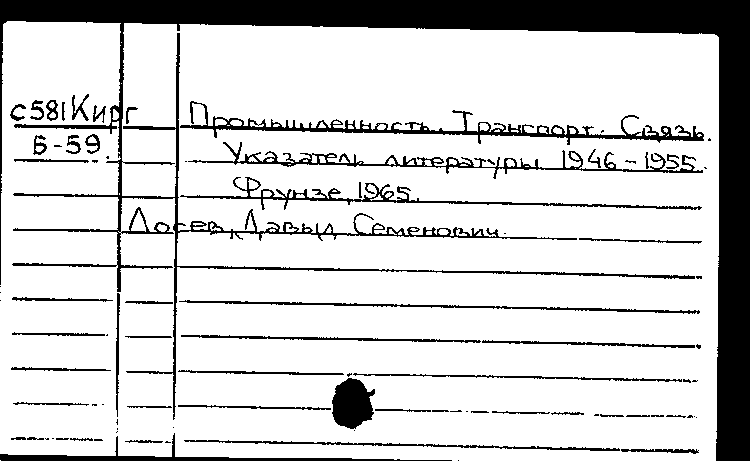 с581Кирг Промышленность. Транспорт. Связь.
Б-59. Указатель литературы 1946-1955.
Фрунзе, 1965.
Лосев, Давыд Семенович.